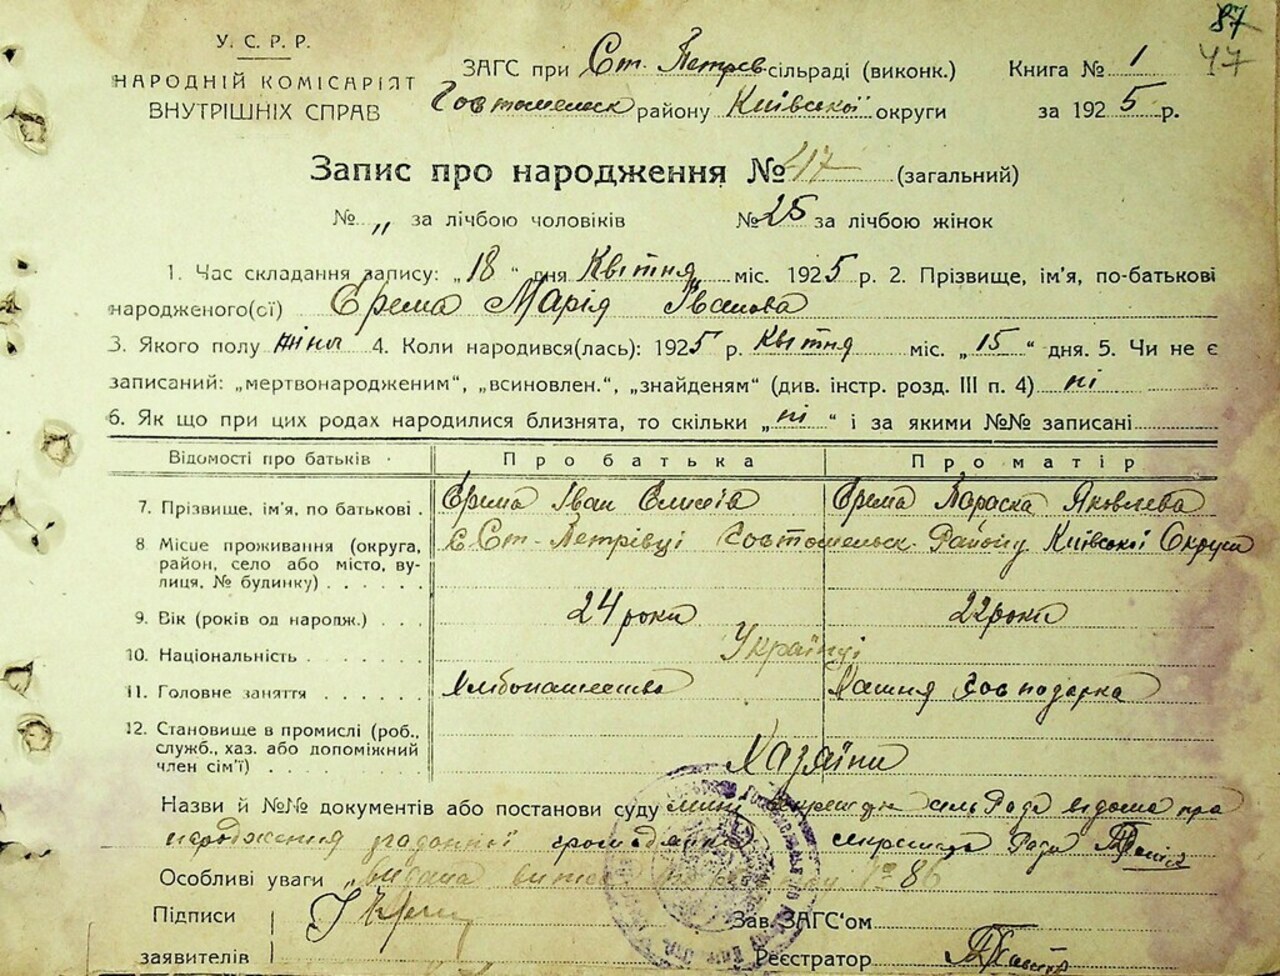 87
47
У. С. Р. Р.
НАРОДНІЙ КОМІСАРІЯТ
ВНУТРІШНІХ СПРАВ
ЗАГС при Ст. Петрів-сільраді (виконк.) Книга № 1
Гостомельск району Київської округи за 1925 р.
Запис про народження № 47 (загальний)
№ „ за лічбою чоловіків № 25 за лічбою жінок
1. Час складання запису: „18“ дня Квітня міс. 1925 р. 2. Прізвище, ім'я, по-батькові
народженого(сі) Єрема Марія Іванова
3. Якого полу жіноч 4. Коли народився(лась): 1925 р. Квітня міс. „15“ дня. 5. Чи не є
записаний: „мертвонародженим“, „всиновлен.“, „знайденям“ (див. інстр. розд. III п. 4) ні
6. Як що при цих родах народилися близнята, то скільки „ні“ і за якими №№ записані
Відомості про батьків Про батька Про матір
7. Прізвище, ім'я, по батькові Єрема Іван Єлисеїв Єрема Параска Яковлева
8 Місце проживання (округа, район, село або місто, вулиця, № будинку) с Ст-Петрівці Гостомельск. Району Київської Округи
9. Вік (років од народж.) 24 роки 22 роки
10. Національність Українці
11. Головне заняття Хлібопашество Хатня Господарка
12. Становище в промислі (роб., служб., хаз. або допоміжний член сім'ї) Хазяїни
Назви й №№ документів або постанови суду мині секретарю сельРада відома про
народження згаданної громадянки секретар Ради
Особливі уваги „видана витяг 86
Підписи заявителів І Єрема
Зав. ЗАГС'ом
Реєстратор